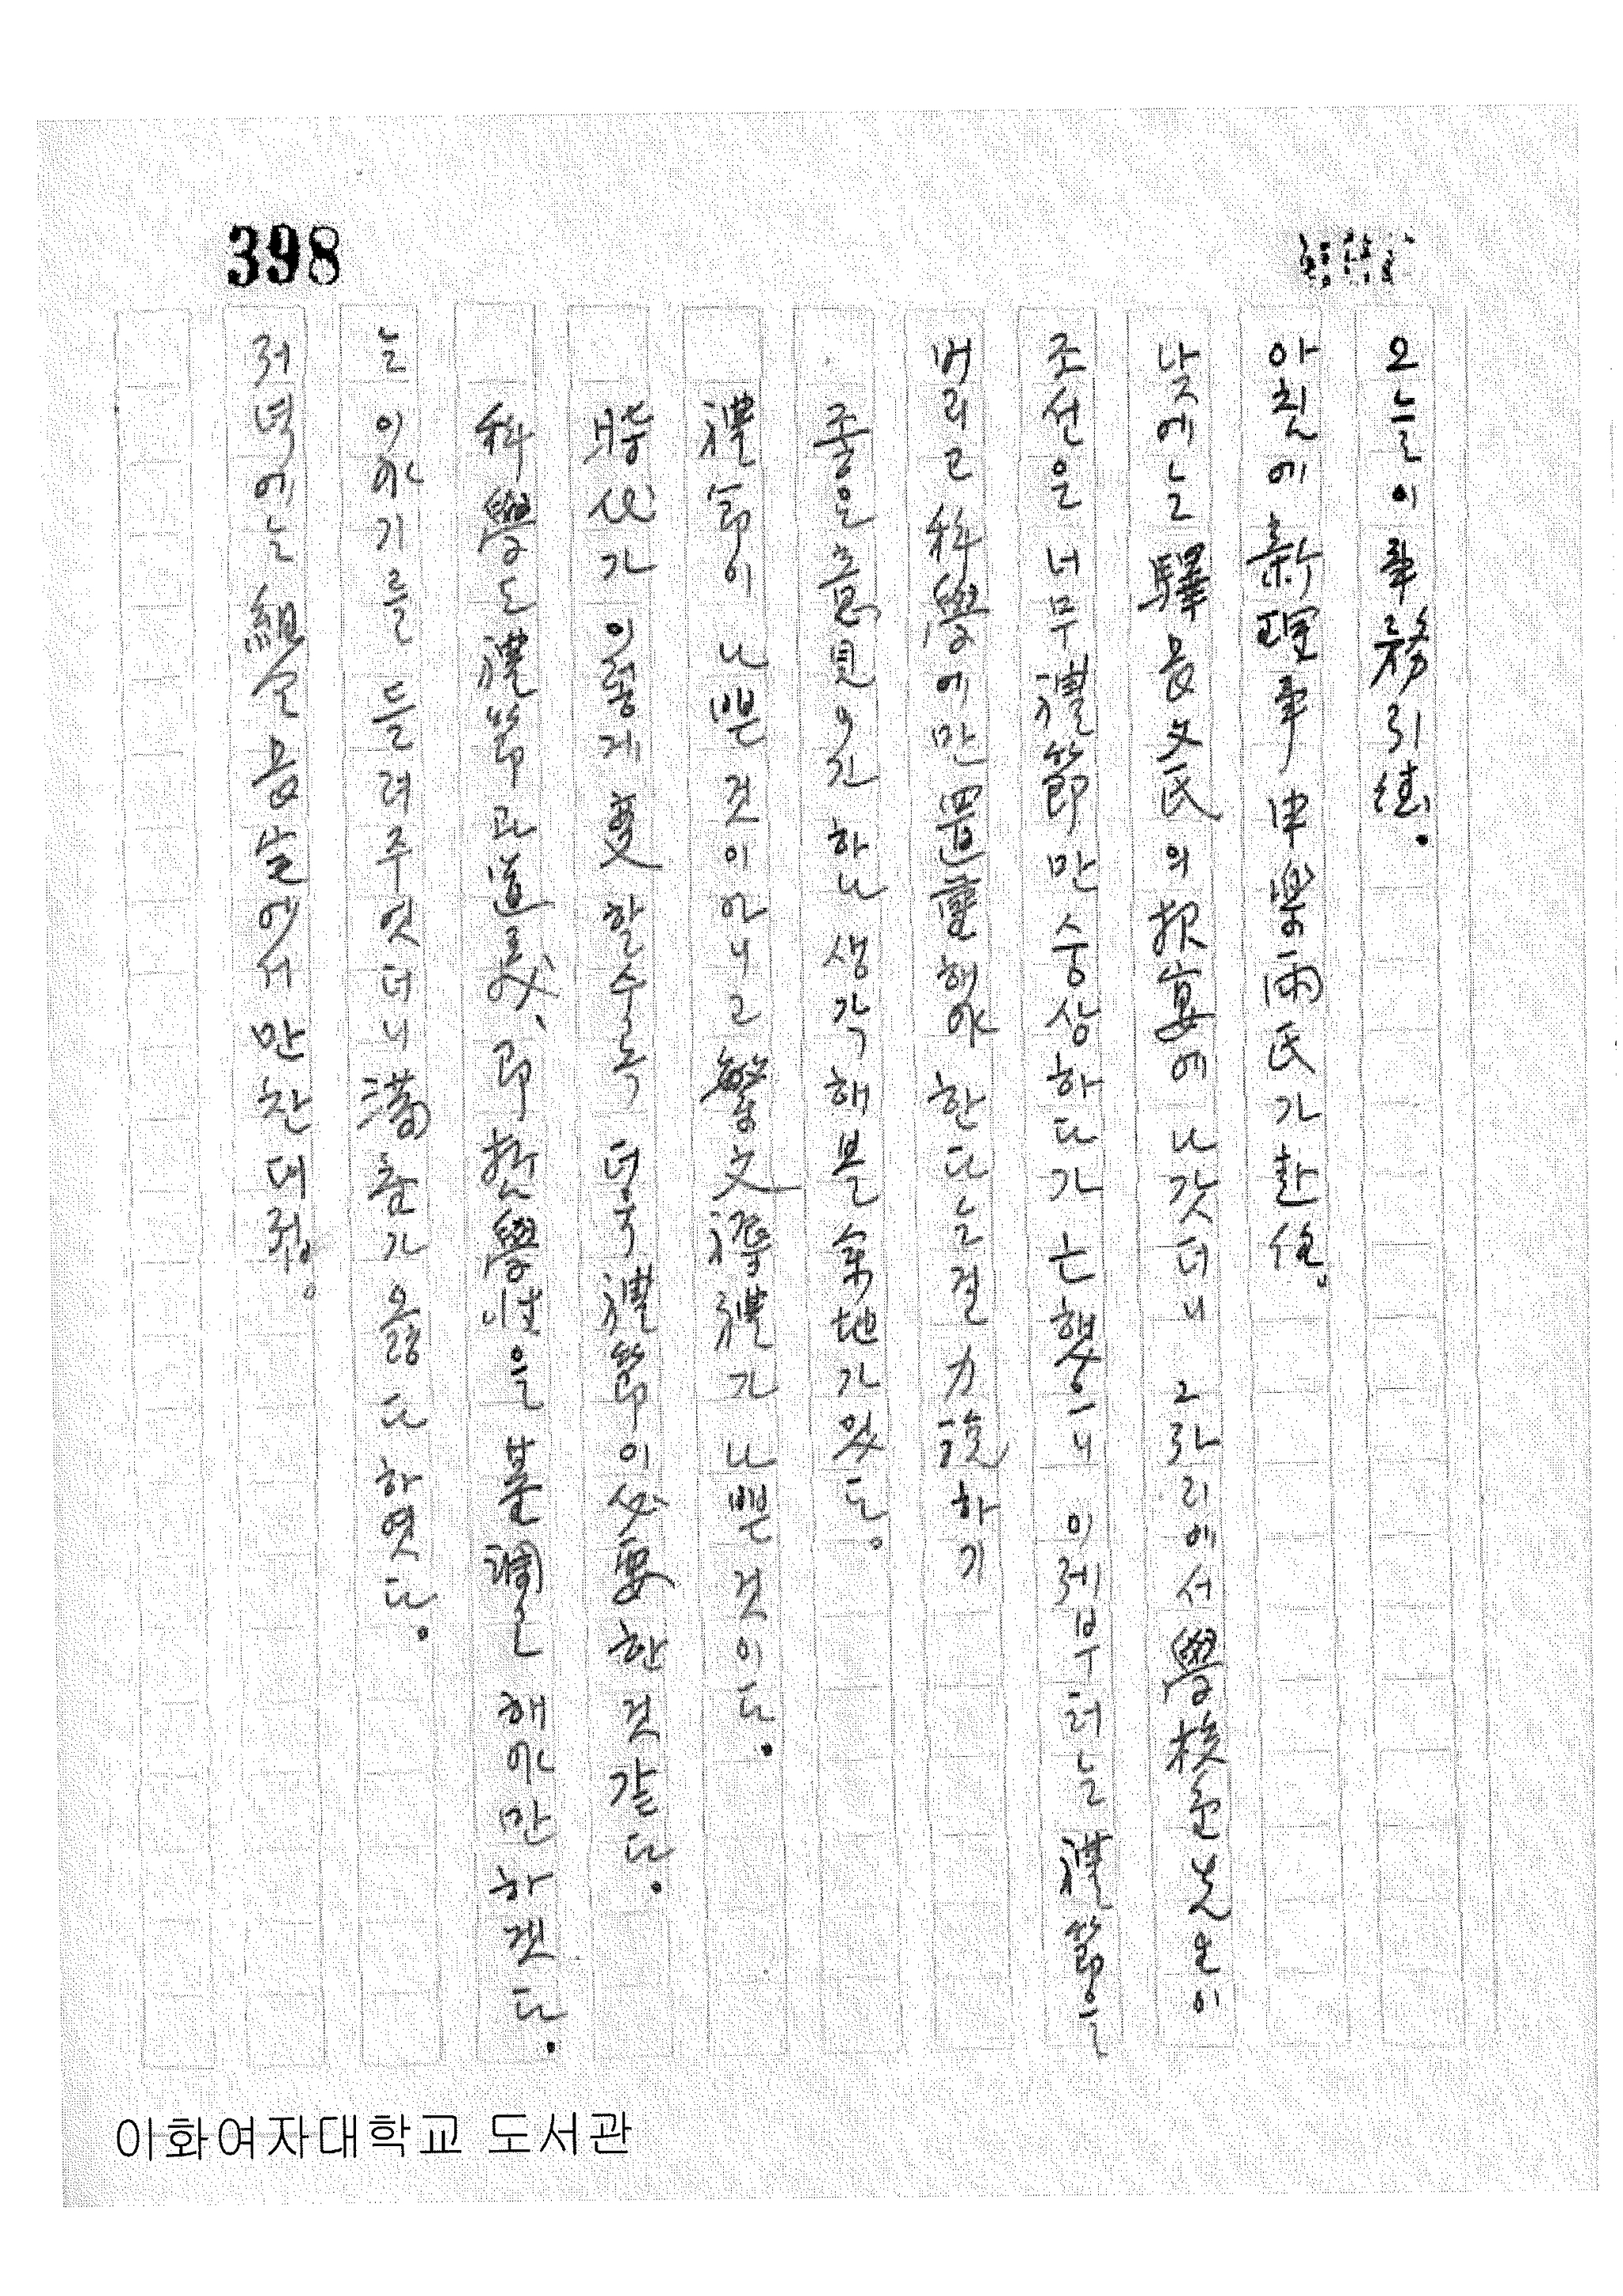 398
오늘이 事務引継.
아칟에 新理事 申樂雨氏가 赴任.
낮에는 驛長 文氏의 招宴에 나갓더니 그 자리에서 學校 先生이
조선은 너무 禮節만 숭상하다가 亡했으니 이제부터는 禮節을
버리고 科學에만 置重해야 한다는 걸 力說하기
좋은 意見이긴 하나 생각해 볼 余地가 있다。
禮節이 나쁜 것이 아니고 繁文褥禮가 나쁜 것이다.
時代가 이렇게 变할수록 더욱 禮節이 必要한 것 같다.
科學도 禮節과 道義、即 哲學性을 基調로 해야만 하겟다.
는 이야기를 들려주엇더니 滿座가 옳다 하엿다.
저녁에는 組合長 宅에서 만찬 대접。
이화여자대학교 도서관